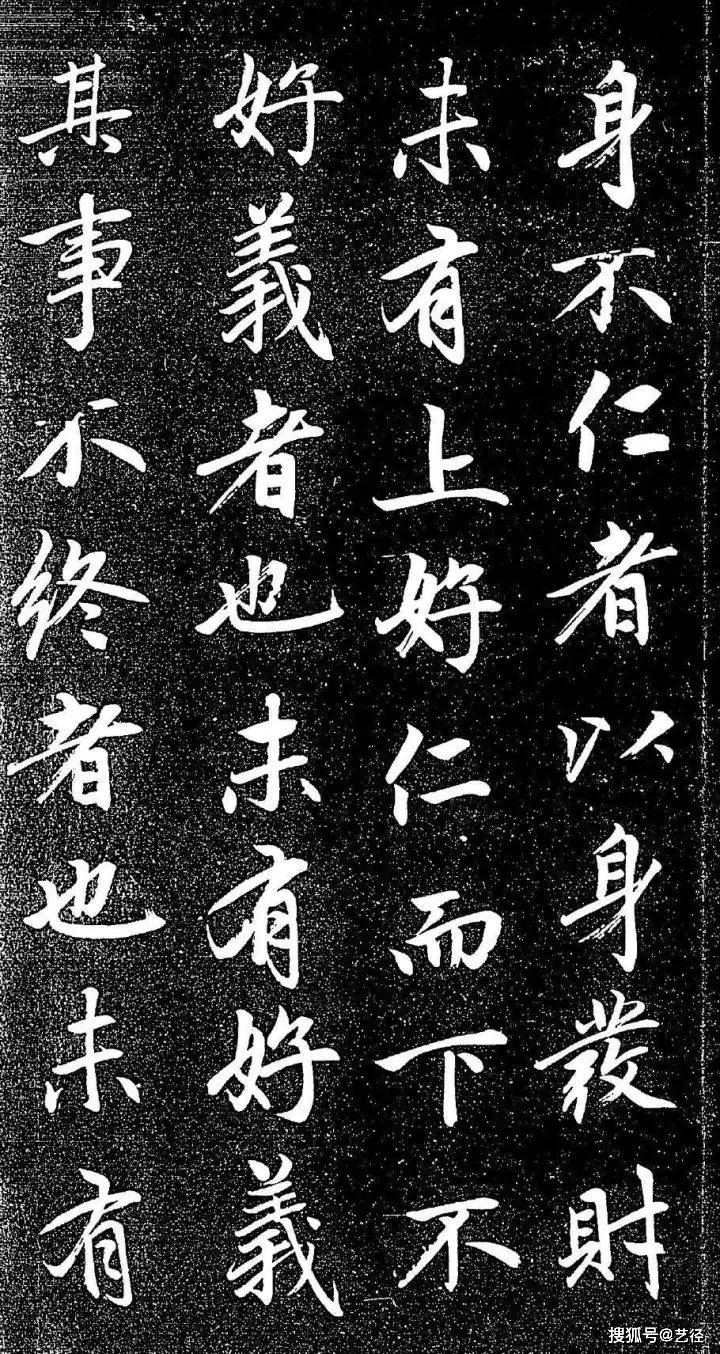 身不仁者以身發財
未有上好仁而下不
好義者也未有好義
其事不終者也未有
搜狐号@艺径